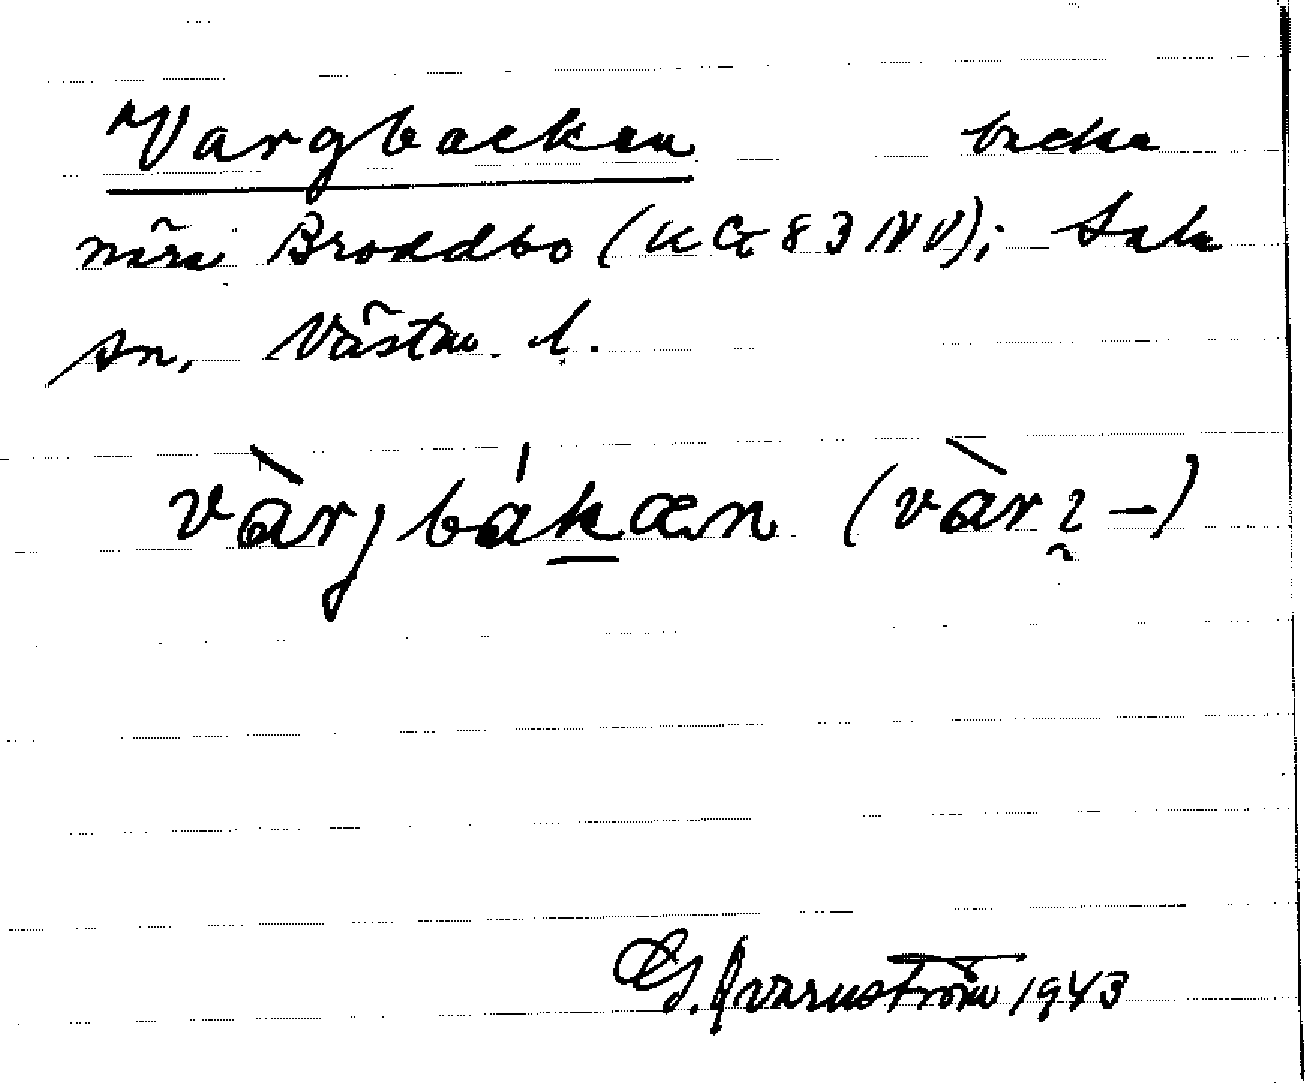 Vargbacken backe
nära Broddbo (KG 83 NV); Sala
sn, Västm. l.
vàrjbákæn (vàrɂ –)
G. Qvarnström 1943